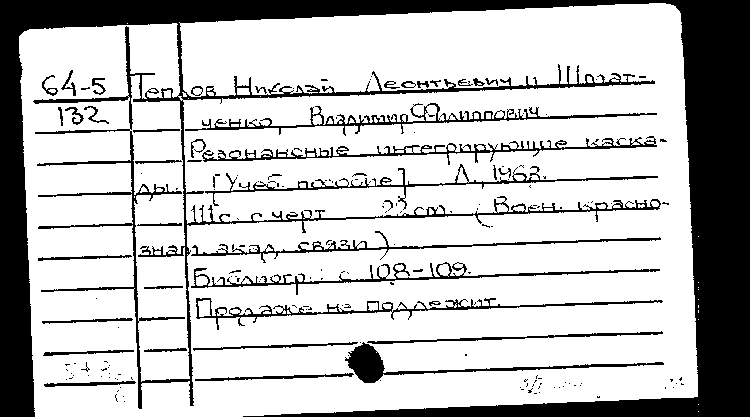 64-5 Теплов, Николай Леонтьевич и Шпат-
132 ченко, Владимир Филиппович
Резонансные интегрирующие каска-
ды. [Учеб. пособие]. Л., 1963.
111 с. с черт 22 см. (Воен. красно-
знам. акад. связи)
Библиогр.: с 108-109.
Продаже не подлежит.